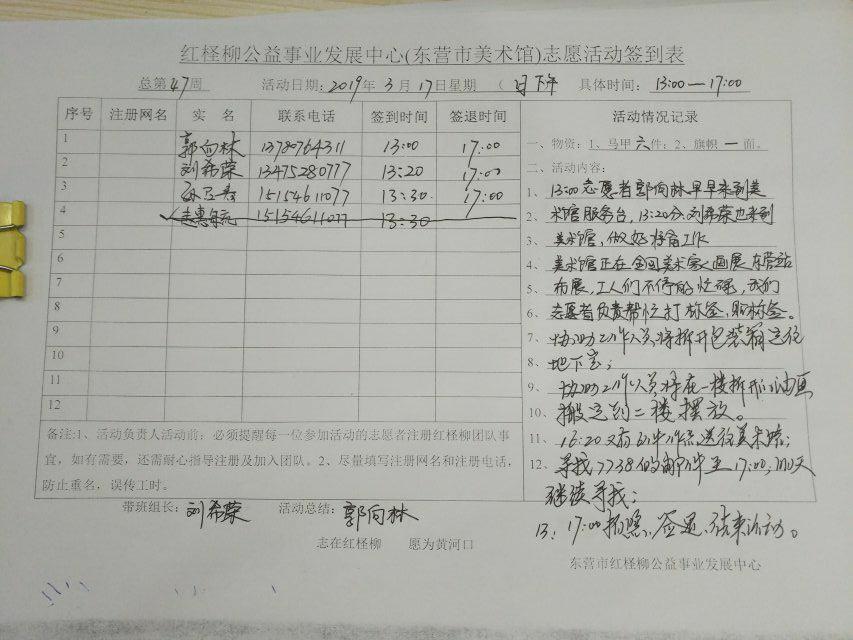 红柽柳公益事业发展中心(东营市美术馆)志愿活动签到表
总第47周 活动日期：2019年3月17日星期（日下午 具体时间：13:00—17:00
序号 注册网名 实 名 联系电话 签到时间 签退时间 活动情况记录
1 郭向林 13780764311 13:00 17:00
2 刘希荣 13475280777 13:20 17:00
3 15154611077 13:30 17:00
4 15154611077 13:30
5
6
7
8
9
10
11
12
一、物资：1、马甲六件；2、旗帜一面。
二、活动内容：
1、13:00志愿者郭向林早早来到美
2、术馆服务台，13:20分刘希荣也来到
3、美术馆，做好准备工作
4、美术馆正在全国美术家画展东营站
5、布展，工人们不停的忙碌，我们
6、志愿者负责帮忙打标签，贴标签。
7、协助工作人员将拆开包装箱运往
8、地下室；
9、协助工作人员将在一楼拆开油画
10、搬运到二楼摆放。
11、16:20又有 送往美术馆；
12、寻找7738的邮件至17:00，明天
继续寻找；
13、17:00拍照，签退，结束活动。
备注:1、活动负责人活动前：必须提醒每一位参加活动的志愿者注册红柽柳团队事
宜，如有需要，还需耐心指导注册及加入团队。2、尽量填写注册网名和注册电话，
防止重名，误传工时。
带班组长：刘希荣 活动总结：郭向林
志在红柽柳 愿为黄河口
东营市红柽柳公益事业发展中心